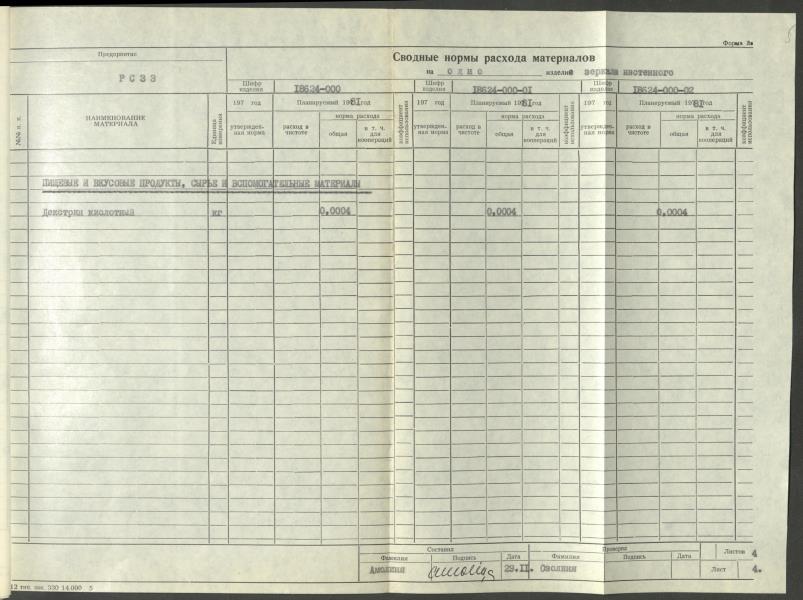 Форма 3в
Предприятие
РСЗЗ
Сводные нормы расхода материалов
на ОДНО изделие зеркала настенного
Шифр изделия I8624-000
Шифр изделия I8624-000-0I
Шифр изделия I8624-000-02
№№ п. п.
НАИМЕНОВАНИЕ МАТЕРИАЛА
Единица измерения
197 год
Планируемый 1981 год
утвержден-ная норма
расход в чистоте
норма расхода
общая
в т. ч. для коопераций
коэффициент использования
197 год
Планируемый 1981 год
утвержден-ная норма
расход в чистоте
норма расхода
общая
в т. ч. для коопераций
коэффициент использования
197 год
Планируемый 1981 год
утвержден-ная норма
расход в чистоте
норма расхода
общая
в т. ч. для коопераций
коэффициент использования
ПИЩЕВЫЕ И ВКУСОВЫЕ ПРОДУКТЫ, СЫРЬЕ И ВСПОМОГАТЕЛЬНЫЕ МАТЕРИАЛЫ
Декстрин кислотный кг 0,0004 0,0004 0,0004
Составил
Проверил
Фамилия Подпись Дата Фамилия Подпись Дата
Листов 4
Амолиня 29.II. Озолиня
Лист 4.
12 тип. зак. 330 14.000 5